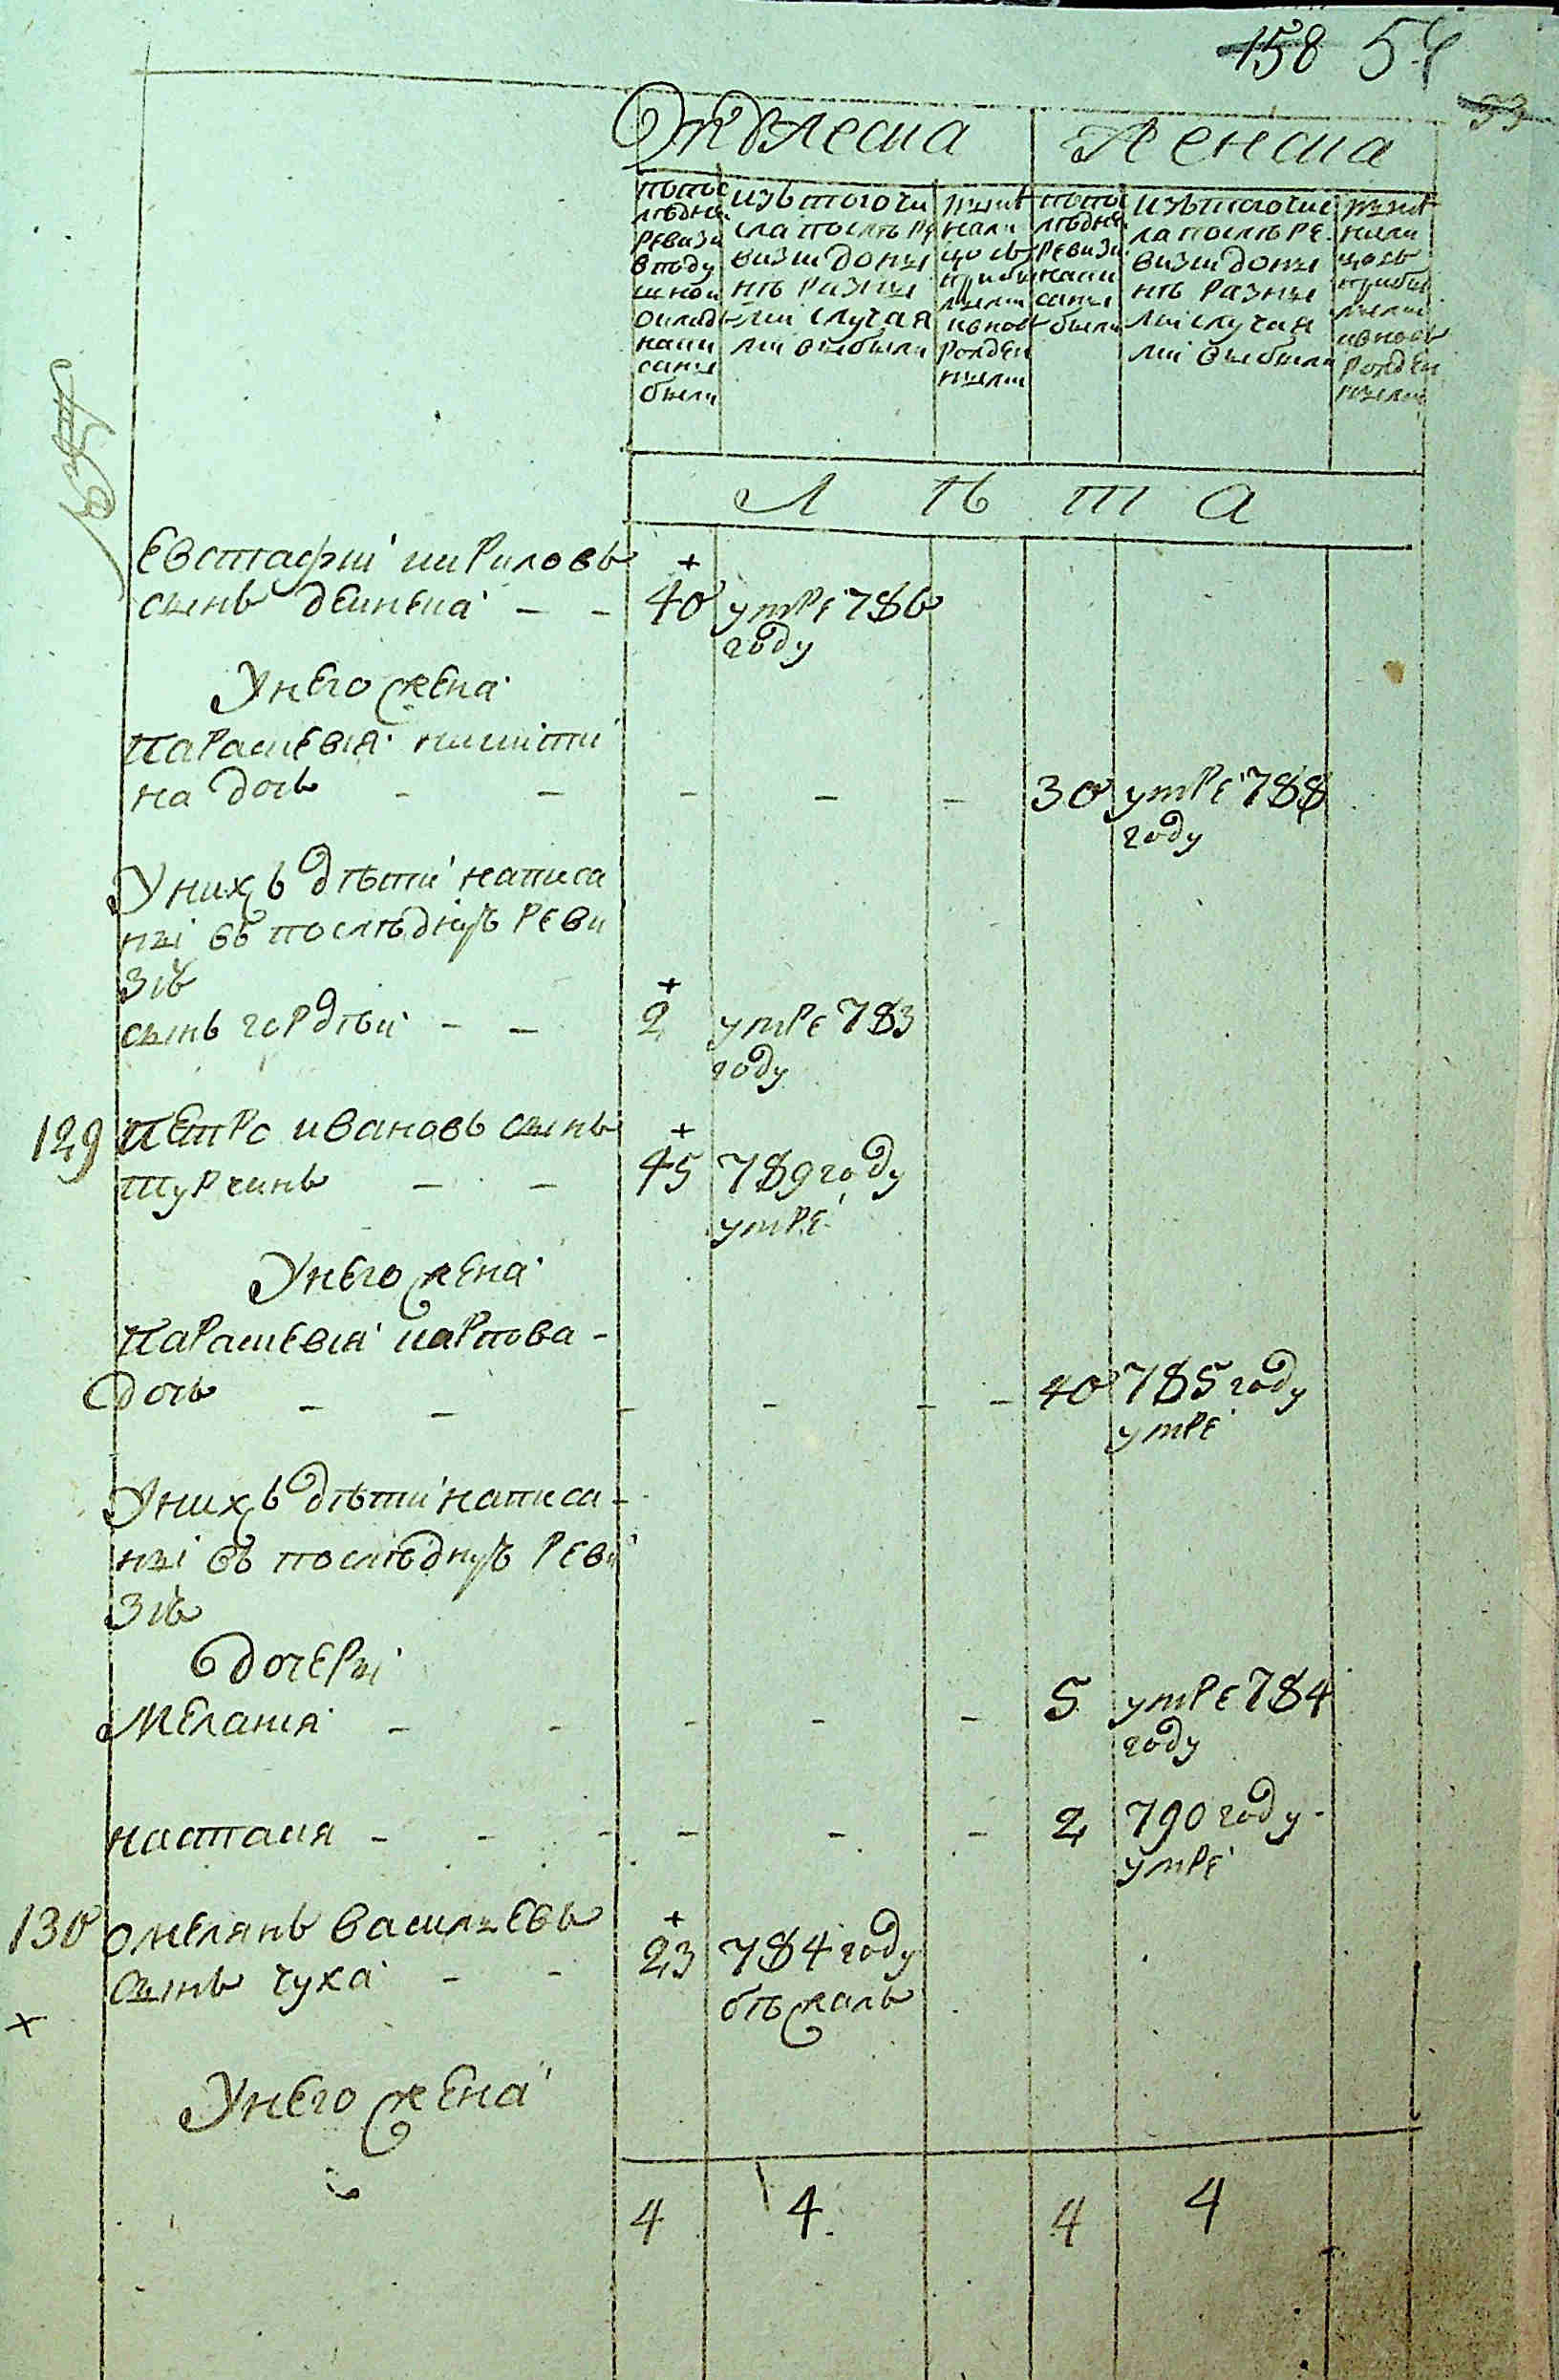 158 54
93
Мужеска
Женска
по по
следне
ревизи
в поду
шной
оклад
напи
саны
были
изъ того чи
сла после ре
визіи до ны
нѣ разны
ми случая
ми выбыли
ныне
нали
цо съ
прибы
лыми
и вновь
рожден
ными
по по
следне
ревизи
напи
саны
были
изъ того чис
ла после ре
визіи до ны
нѣ разны
ми случая
ми выбыли
ныне
нали
цо съ
прибы
лыми
и вновь
рожден
ными
Л ѣ т а
Евстафій кириловъ
сынъ деинека - - 40 умре 786
году
У него жена
Параскевія никити
на дочь - - - - - 30 умре 788
году
У нихъ дѣти написа
ні въ последную реви
зію
сынъ гордѣй - - 2 умре 783
году
129 Петро ивановъ сынъ
турчинъ - - 45 789 году
умре
У него жена
Параскевія карпова -
дочь - - - - - - 40 785 году
умре
У нихъ дѣти написа-
ні въ последную реви
зію
дочери
Меланія - - - - - 5 умре 784
году
настасия - - - - - - 2 790 году -
умре
130 омелянъ васильевъ
сынъ чуха - - 23 784 году
бѣжалъ
У него жена
4 4 4 4